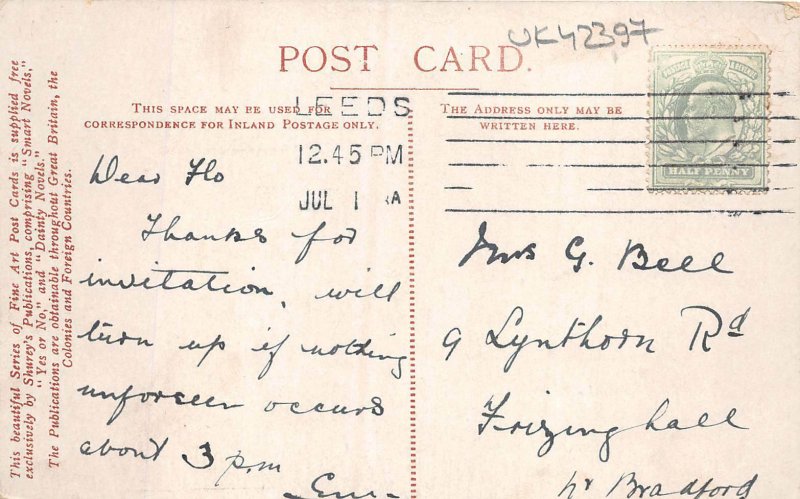 UK42397
POST CARD.
THIS SPACE MAY BE USED FOR
CORRESPONDENCE FOR INLAND POSTAGE ONLY.
THE ADDRESS ONLY MAY BE
WRITTEN HERE.
LEEDS
12.45 PM
JUL 1
HALF PENNY
This beautiful Series of Fine Art Post Cards is supplied free
exclusively by Shurey's Publications, comprising "Smart Novels,"
"Yes or No," and "Dainty Novels."
The Publications are obtainable throughout Great Britain, the
Colonies and Foreign Countries.
Dear Flo
Thanks for
invitation, will
turn up if nothing
unforseen occurs
about 3 p.m
Mrs G. Bell
9 Lynthorn Rd
Frizinghall
nr Bradford